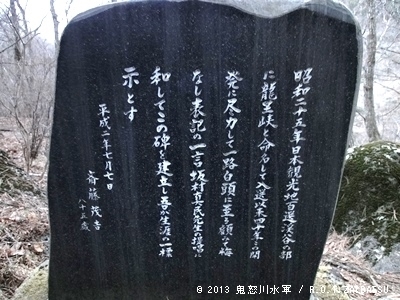 昭和二十五年日本観光地百選渓谷の部
に龍王峡と命名して入選以来四十年の間
発に尽力して一路白頭に至る顧みて悔
なし表記の一言坂村真民先生の提言に
和してこの碑を建立し吾が生涯の一標
示とす
平成二年七月七日
斎藤茂吉
八十三歳
© 2013 鬼怒川水軍 /